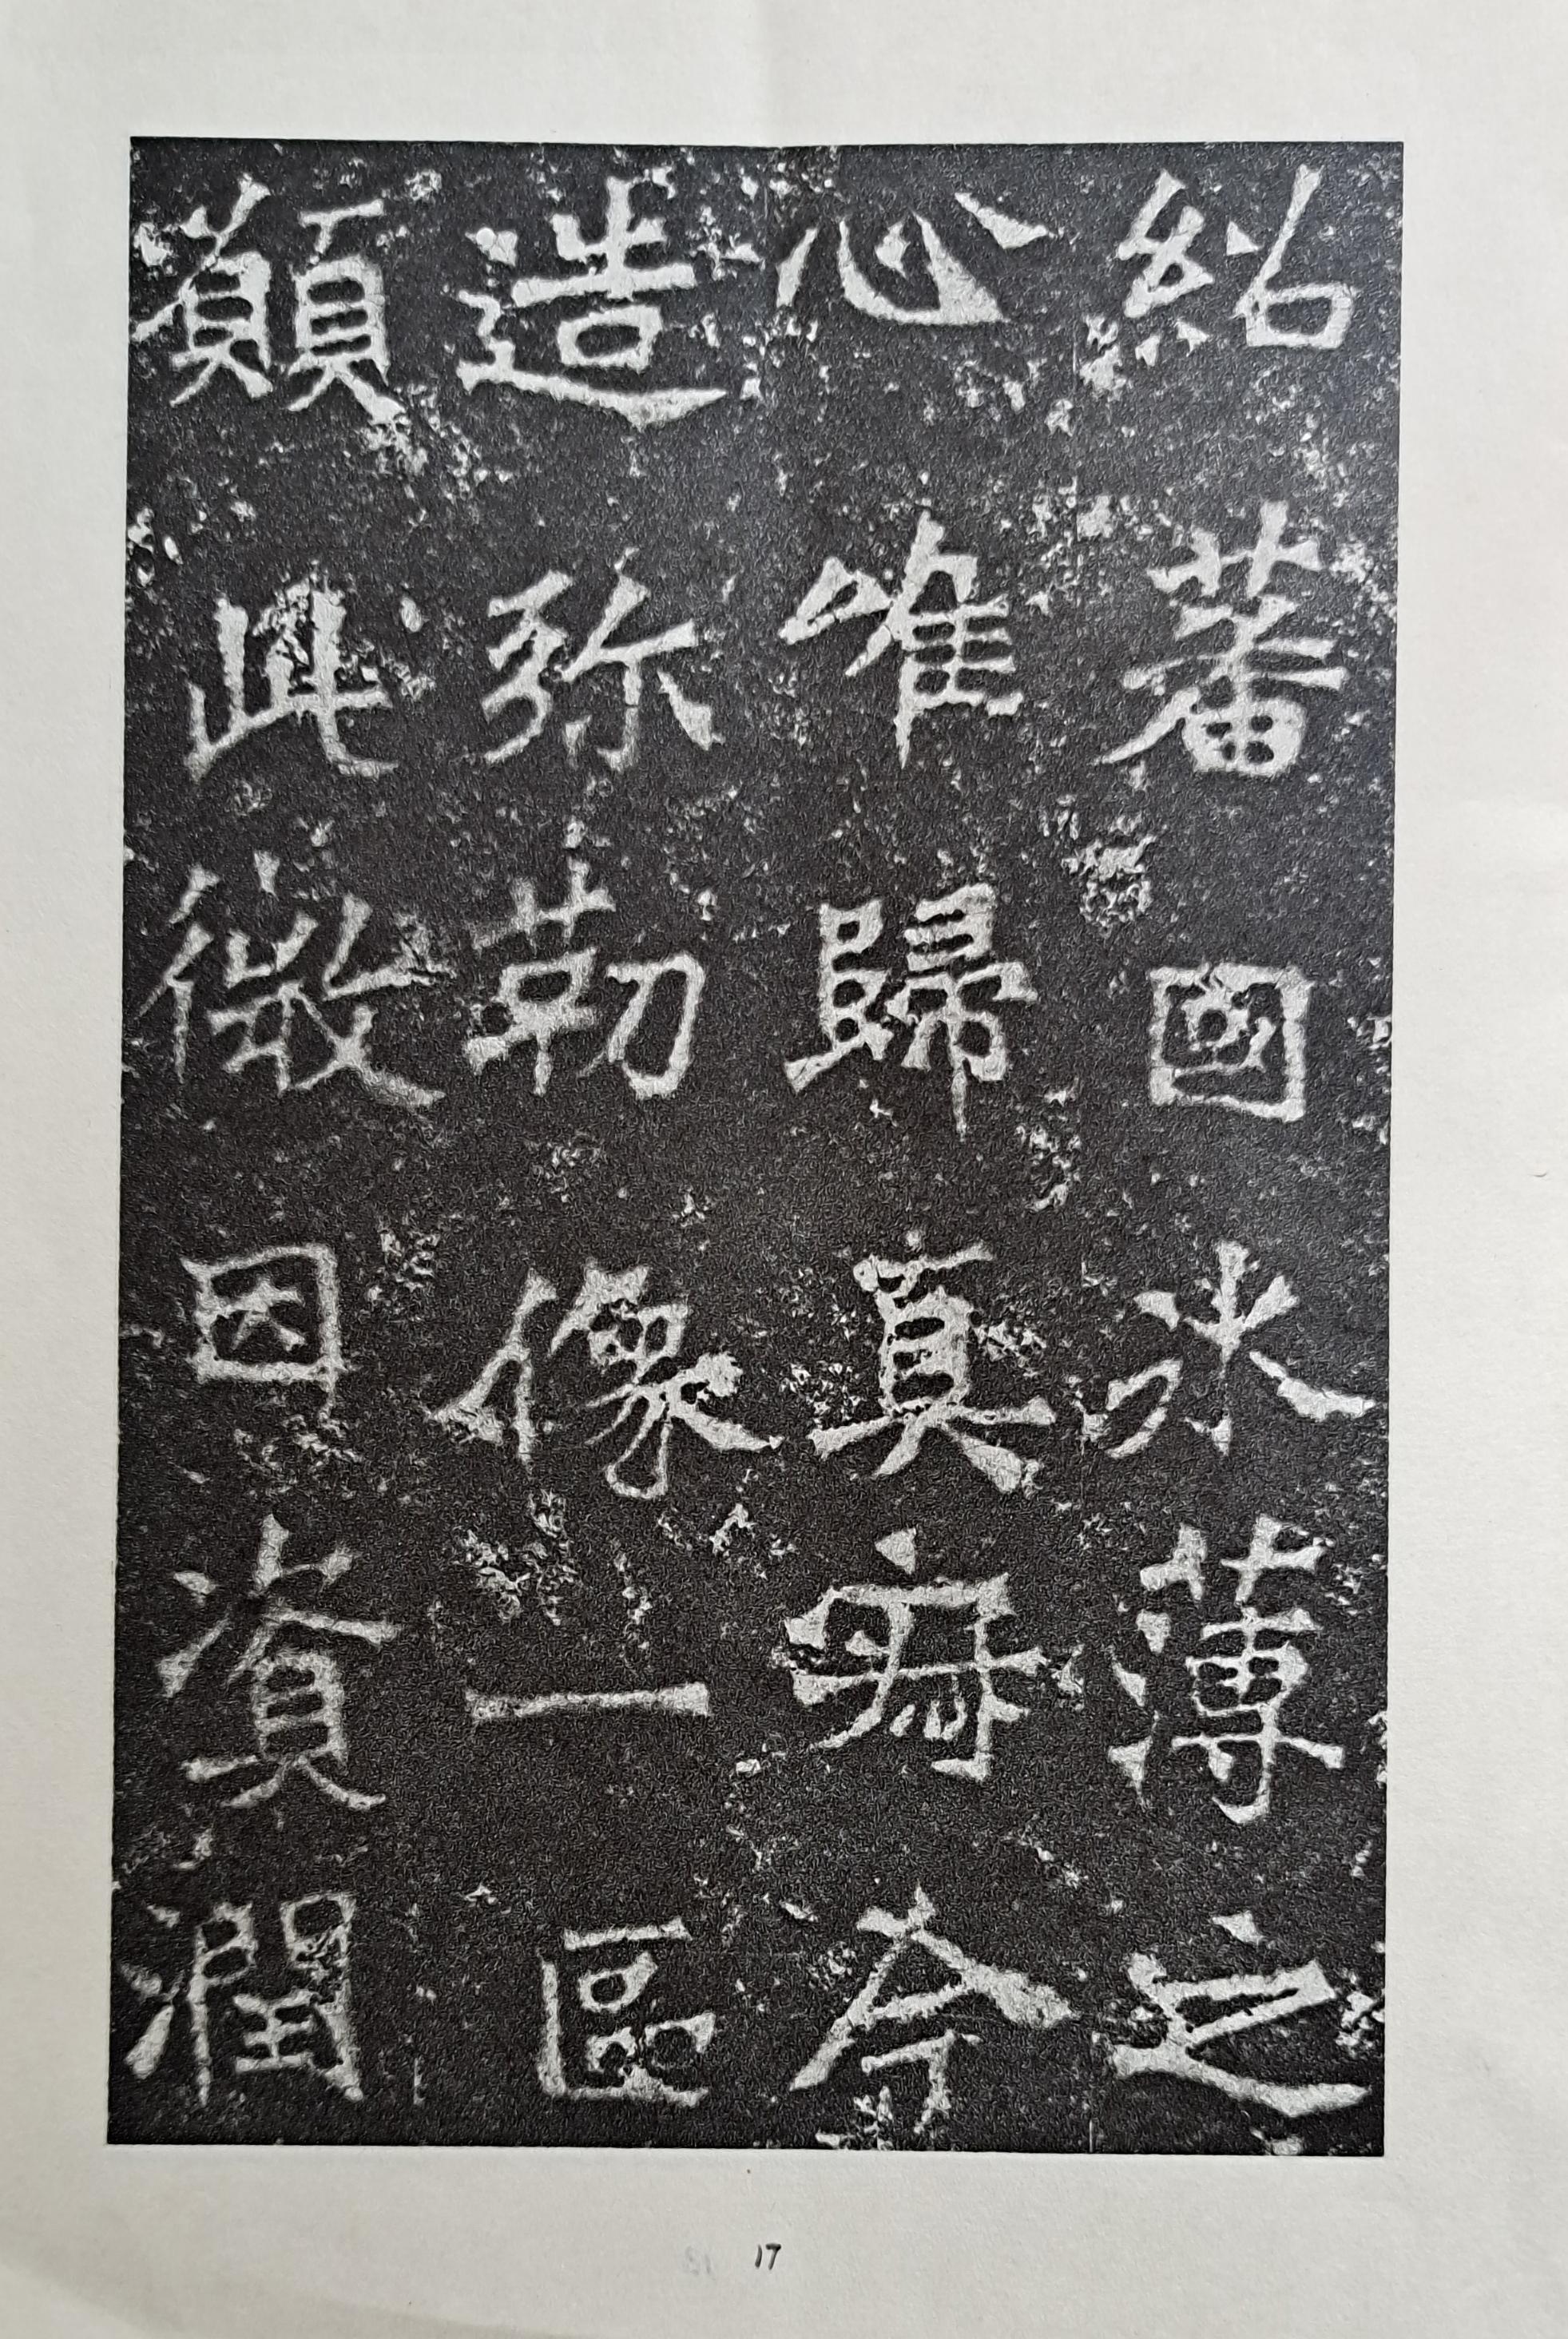 紹蕃國氷薄之
心唯歸真寂今
造弥勒像一區
願此微因資潤
17